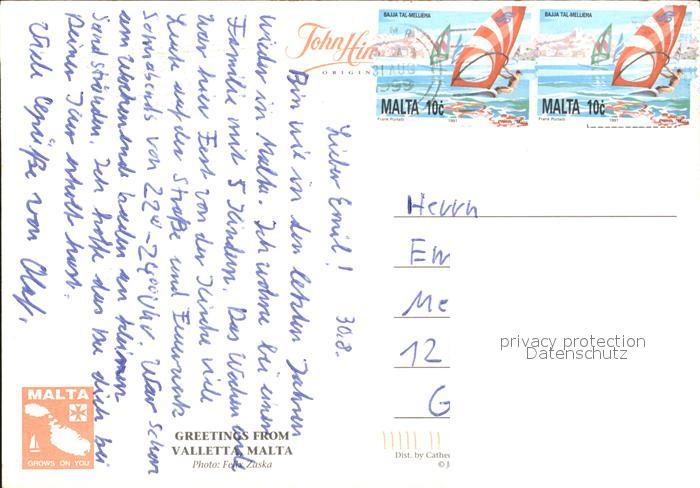 John Hin
ORIGIN
BAJJA TAL-MELLIEHA
MALTA 10c
Frank Portelli 1991
BAJJA TAL-MELLIEHA
MALTA 10c
Frank Portelli 1991
31 AUG
1999
Lieber Emil! 30.8.
Bin wie in den letzten Jahren
wieder in Malta. Ich wohne bei einer
Familie mit 5 Kindern. Das Wochenende
war hier Fest von der Kirche viele
Leute auf der Straße und Feuerwerk
Sonnabends von 22⁴⁵-24⁰⁰ Uhr. War schon
am Wochenende baden an kleinen
Sandstränden. Ich hoffe das Du dich bei
Deiner Kur erholt hast.
Viele Grüße von Olaf.
Herrn
Em
Me
12
G
privacy protection
Datenschutz
MALTA
GROWS ON YOU
GREETINGS FROM
VALLETTA, MALTA
Photo: Felix Zaska
Dist. by Cathe
© J